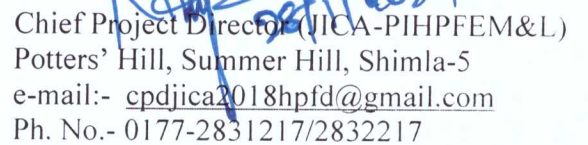 Chief Project Director (JICA-PIHPFEM&L)
Potters' Hill, Summer Hill, Shimla-5
e-mail:- cpdjica2018hpfd@gmail.com
Ph. No.- 0177-2831217/2832217